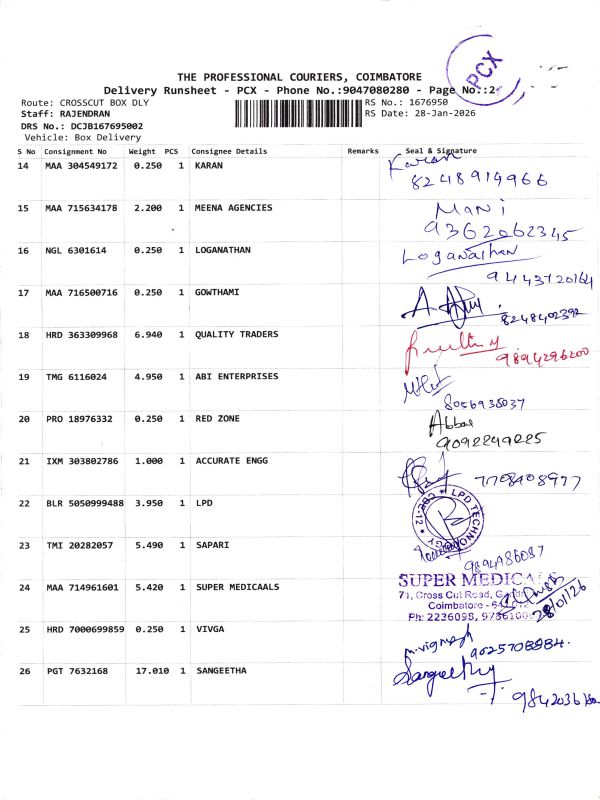 PCX
THE PROFESSIONAL COURIERS, COIMBATORE
Delivery Runsheet - PCX - Phone No.:9047080280 - Page No.:2
Route: CROSSCUT BOX DLY
RS No.: 1676950
Staff: RAJENDRAN
RS Date: 28-Jan-2026
DRS No.: DCJB167695002
Vehicle: Box Delivery
S No Consignment No Weight PCS Consignee Details Remarks Seal & Signature
14 MAA 304549172 0.250 1 KARAN Karan
8248914966
15 MAA 715634178 2.200 1 MEENA AGENCIES Mani
9362062345
16 NGL 6301614 0.250 1 LOGANATHAN Loganathan
9443720164
17 MAA 716500716 0.250 1 GOWTHAMI
8248402392
18 HRD 363309968 6.940 1 QUALITY TRADERS
9894296200
19 TMG 6116024 4.950 1 ABI ENTERPRISES
8056938037
20 PRO 18976332 0.250 1 RED ZONE Abbas
9092249225
21 IXM 303802786 1.000 1 ACCURATE ENGG
7708908977
22 BLR 5050999488 3.950 1 LPD LPD TECHNOLOGY
CBE-12
23 TMI 20282057 5.490 1 SAPARI
9894986087
24 MAA 714961601 5.420 1 SUPER MEDICAALS SUPER MEDICALS
71, Cross Cut Road,
Coimbatore -
Ph: 2236098,
28/01/26
25 HRD 7000699859 0.250 1 VIVGA
9025708984.
26 PGT 7632168 17.010 1 SANGEETHA Sangeetha